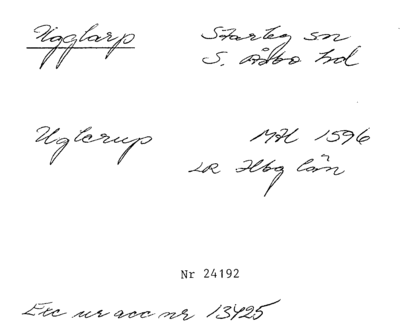 Ugglarp Starby sn
S. Åsbo hd
Uglerup MH 1596
LR Hbg län
Nr 24192
Exc ur acc nr 13425